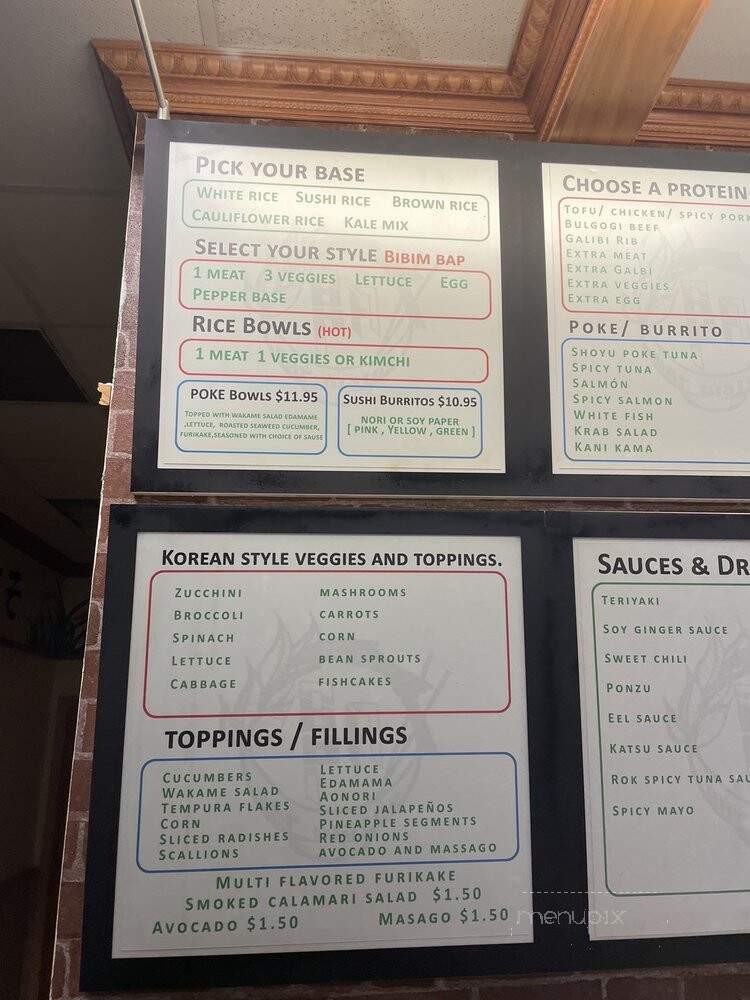 PICK YOUR BASE
WHITE RICE SUSHI RICE BROWN RICE
CAULIFLOWER RICE KALE MIX
SELECT YOUR STYLE BIBIM BAP
1 MEAT 3 VEGGIES LETTUCE EGG
PEPPER BASE
RICE BOWLS (HOT)
1 MEAT 1 VEGGIES OR KIMCHI
POKE BOWLS $11.95
TOPPED WITH WAKAME SALAD EDAMAME
,LETTUCE, ROASTED SEAWEED CUCUMBER,
FURIKAKE,SEASONED WITH CHOICE OF SAUSE
SUSHI BURRITOS $10.95
NORI OR SOY PAPER
[ PINK , YELLOW , GREEN ]
CHOOSE A PROTEIN
TOFU/ CHICKEN/ SPICY PORK
BULGOGI BEEF
GALIBI RIB
EXTRA MEAT
EXTRA GALBI
EXTRA VEGGIES
EXTRA EGG
POKE/ BURRITO
SHOYU POKE TUNA
SPICY TUNA
SALMÓN
SPICY SALMON
WHITE FISH
KRAB SALAD
KANI KAMA
KOREAN STYLE VEGGIES AND TOPPINGS.
ZUCCHINI MASHROOMS
BROCCOLI CARROTS
SPINACH CORN
LETTUCE BEAN SPROUTS
CABBAGE FISHCAKES
TOPPINGS / FILLINGS
CUCUMBERS
WAKAME SALAD
TEMPURA FLAKES
CORN
SLICED RADISHES
SCALLIONS
LETTUCE
EDAMAMA
AONORI
SLICED JALAPEÑOS
PINEAPPLE SEGMENTS
RED ONIONS
AVOCADO AND MASSAGO
MULTI FLAVORED FURIKAKE
SMOKED CALAMARI SALAD $1.50
AVOCADO $1.50 MASAGO $1.50
SAUCES & DR
TERIYAKI
SOY GINGER SAUCE
SWEET CHILI
PONZU
EEL SAUCE
KATSU SAUCE
ROK SPICY TUNA SAU
SPICY MAYO
menupix